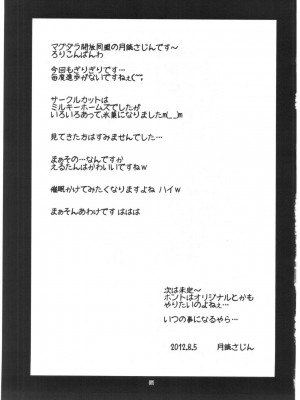 マグダラ開放同盟の月鍋さじんです～
ろりこんばんわ
今回もぎりぎりです…
毎度進歩がないですねぇ(^^;
サークルカットは
ミルキーホームズでしたが
いろいろあって、氷菓になりましたm(__)m
見てきた方はすみませんでした…
まぁその…なんですか
えるたんはかわいいですねｗ
催眠かけてみたくなりますよね ハイｗ
まぁそんあわけです ははは
次は未定～
ホントはオリジナルとかも
やりたいのよねぇ…
いつの事になるやら…
2012.8.5 月鍋さじん